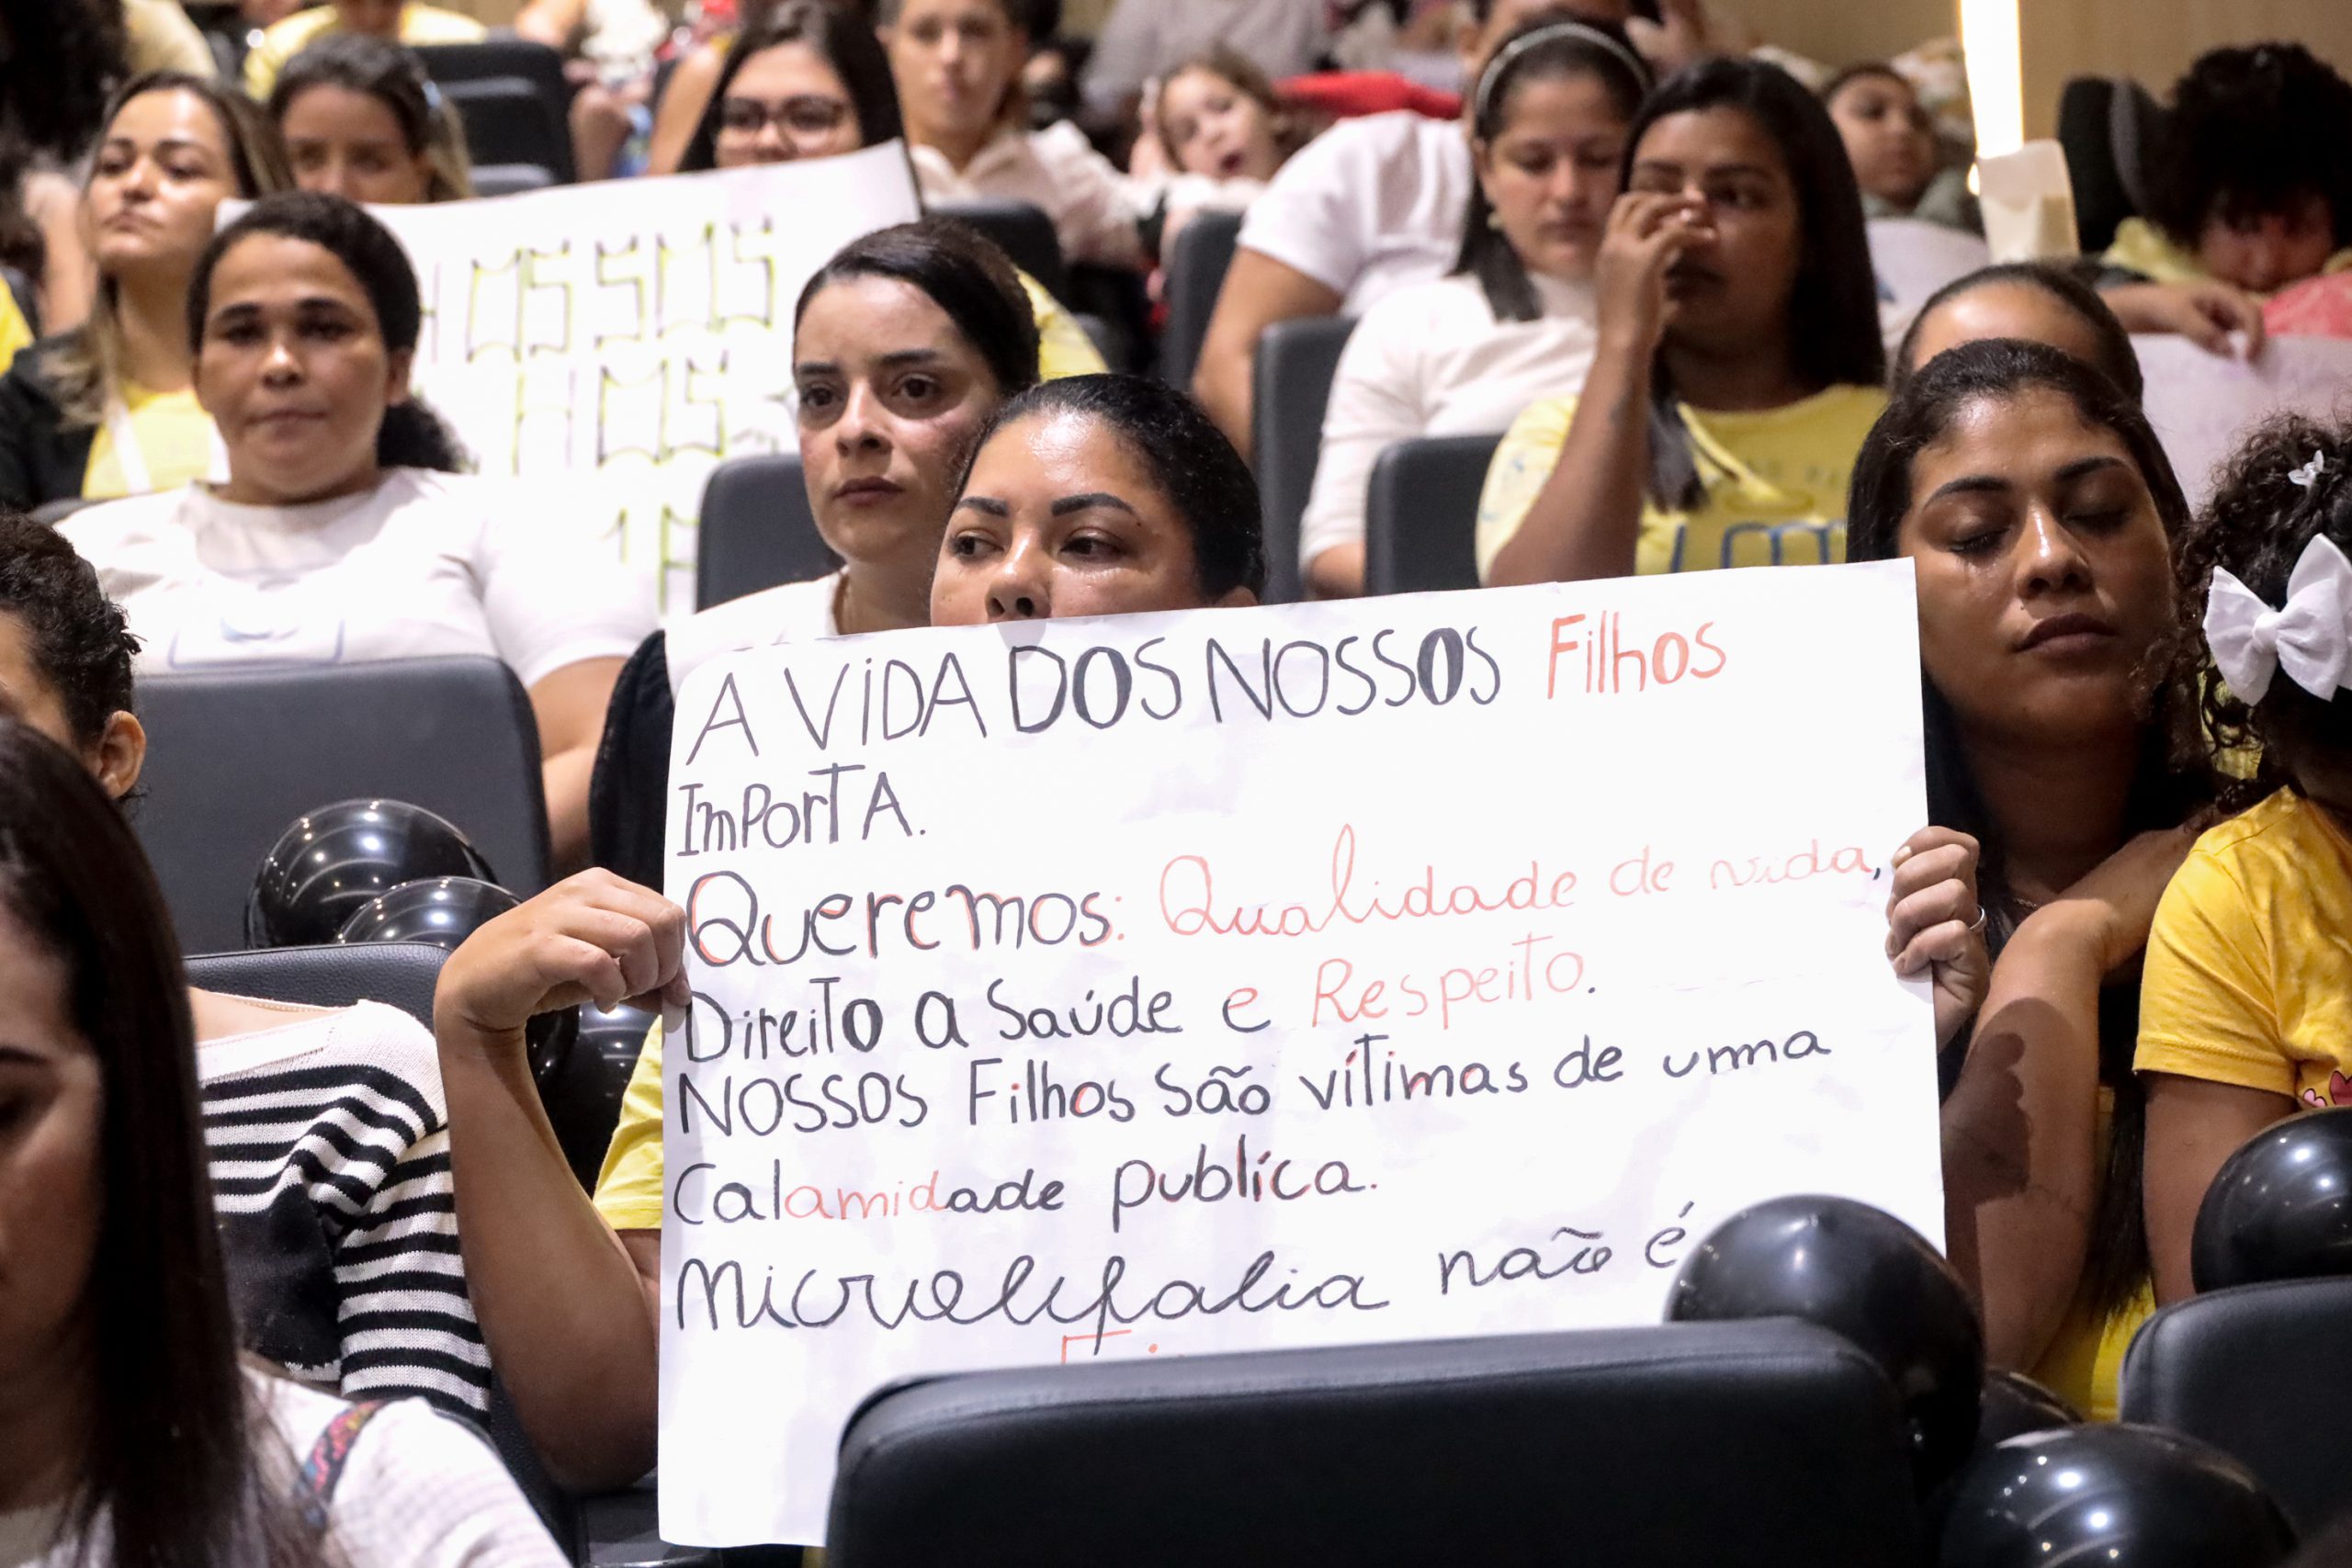 NOSSOS
A VIDA DOS NOSSOS Filhos
ImPorTA.
Queremos: Qualidade de vida,
Direito a Saúde e Respeito.
NOSSOS Filhos São vítimas de uma
Calamidade publíca.
Microcefalia não é